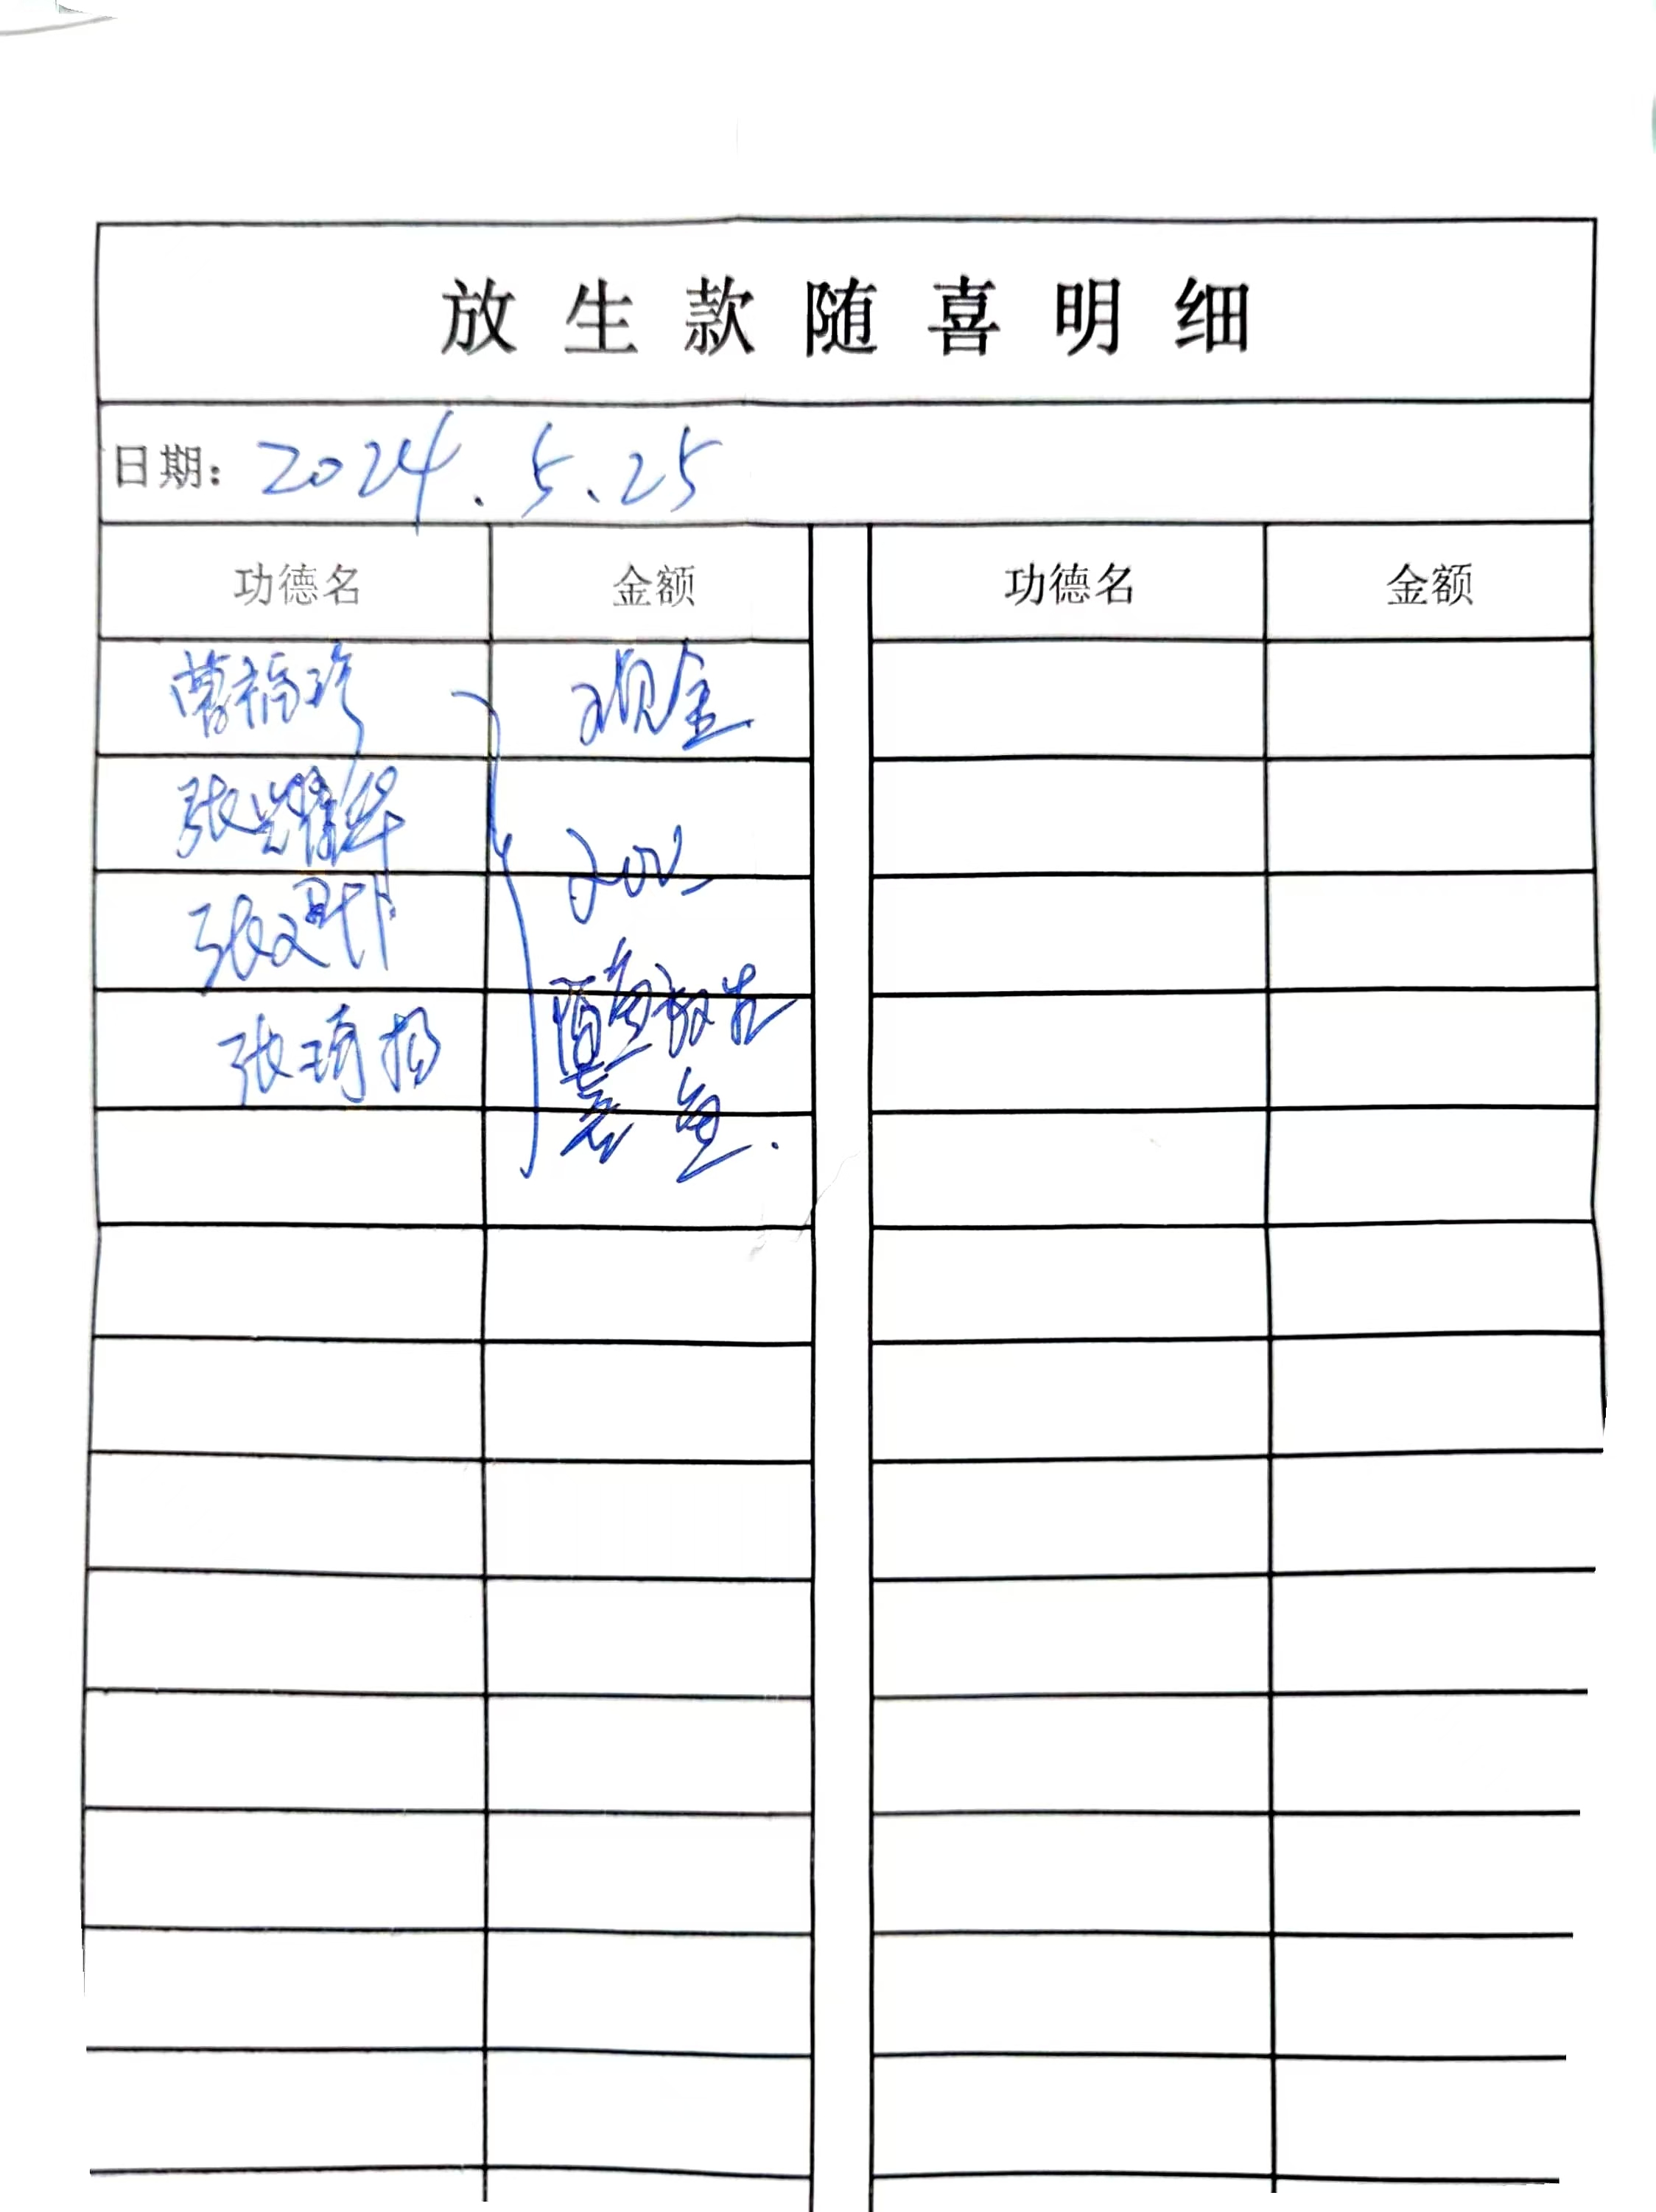 放生款随喜明细
日期: 2024.5.25
功德名 金额 功德名 金额
曹福珍 现金
张耀华
200
张文
张琦
放生
鱼.